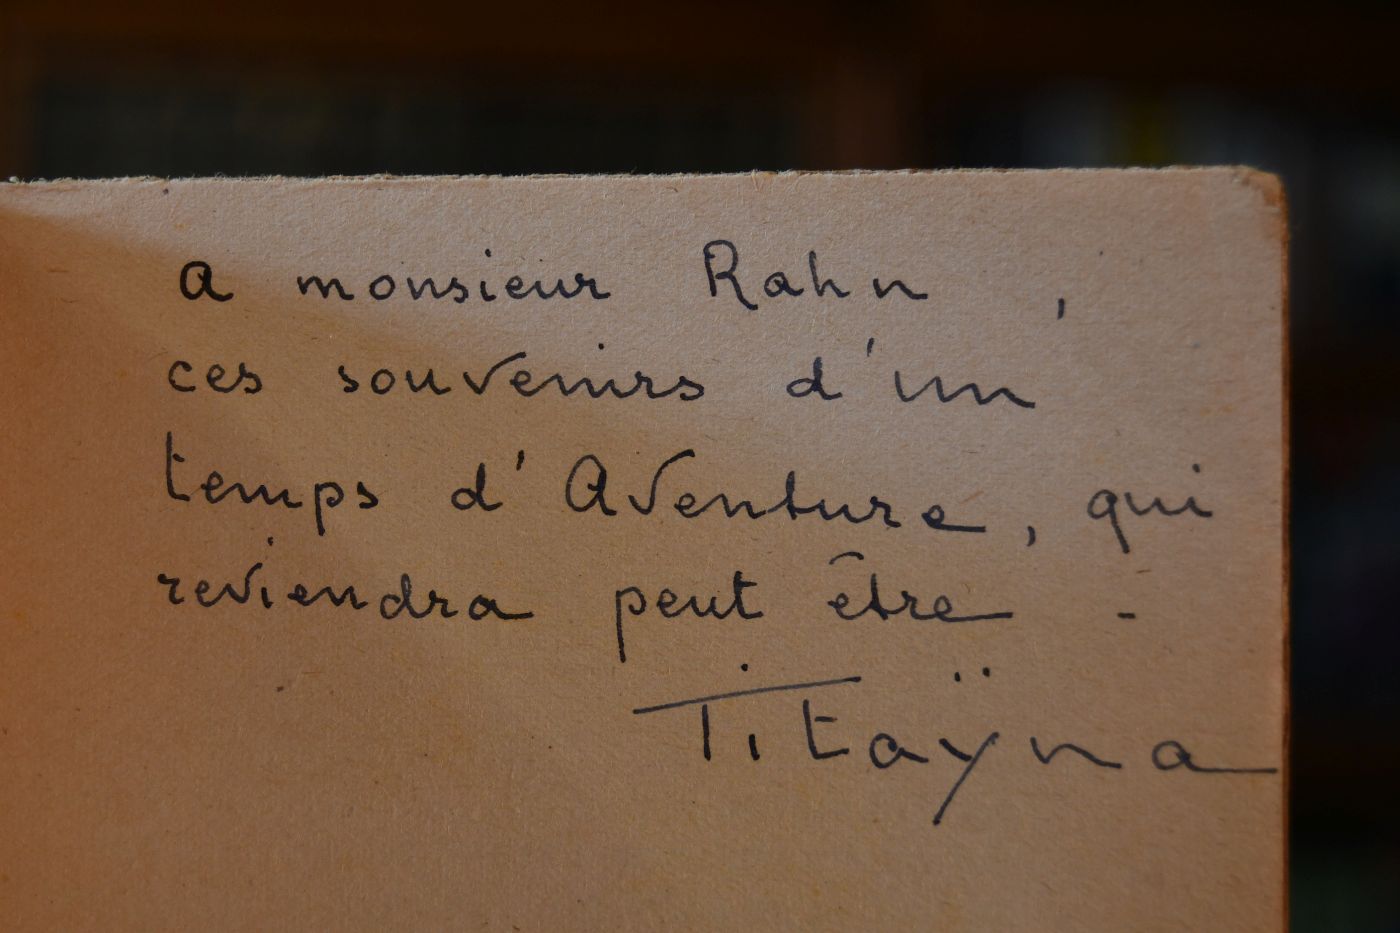 a monsieur Rahn ,
ces souvenirs d'un
temps d'Aventure, qui
reviendra peut être -
Titaÿna